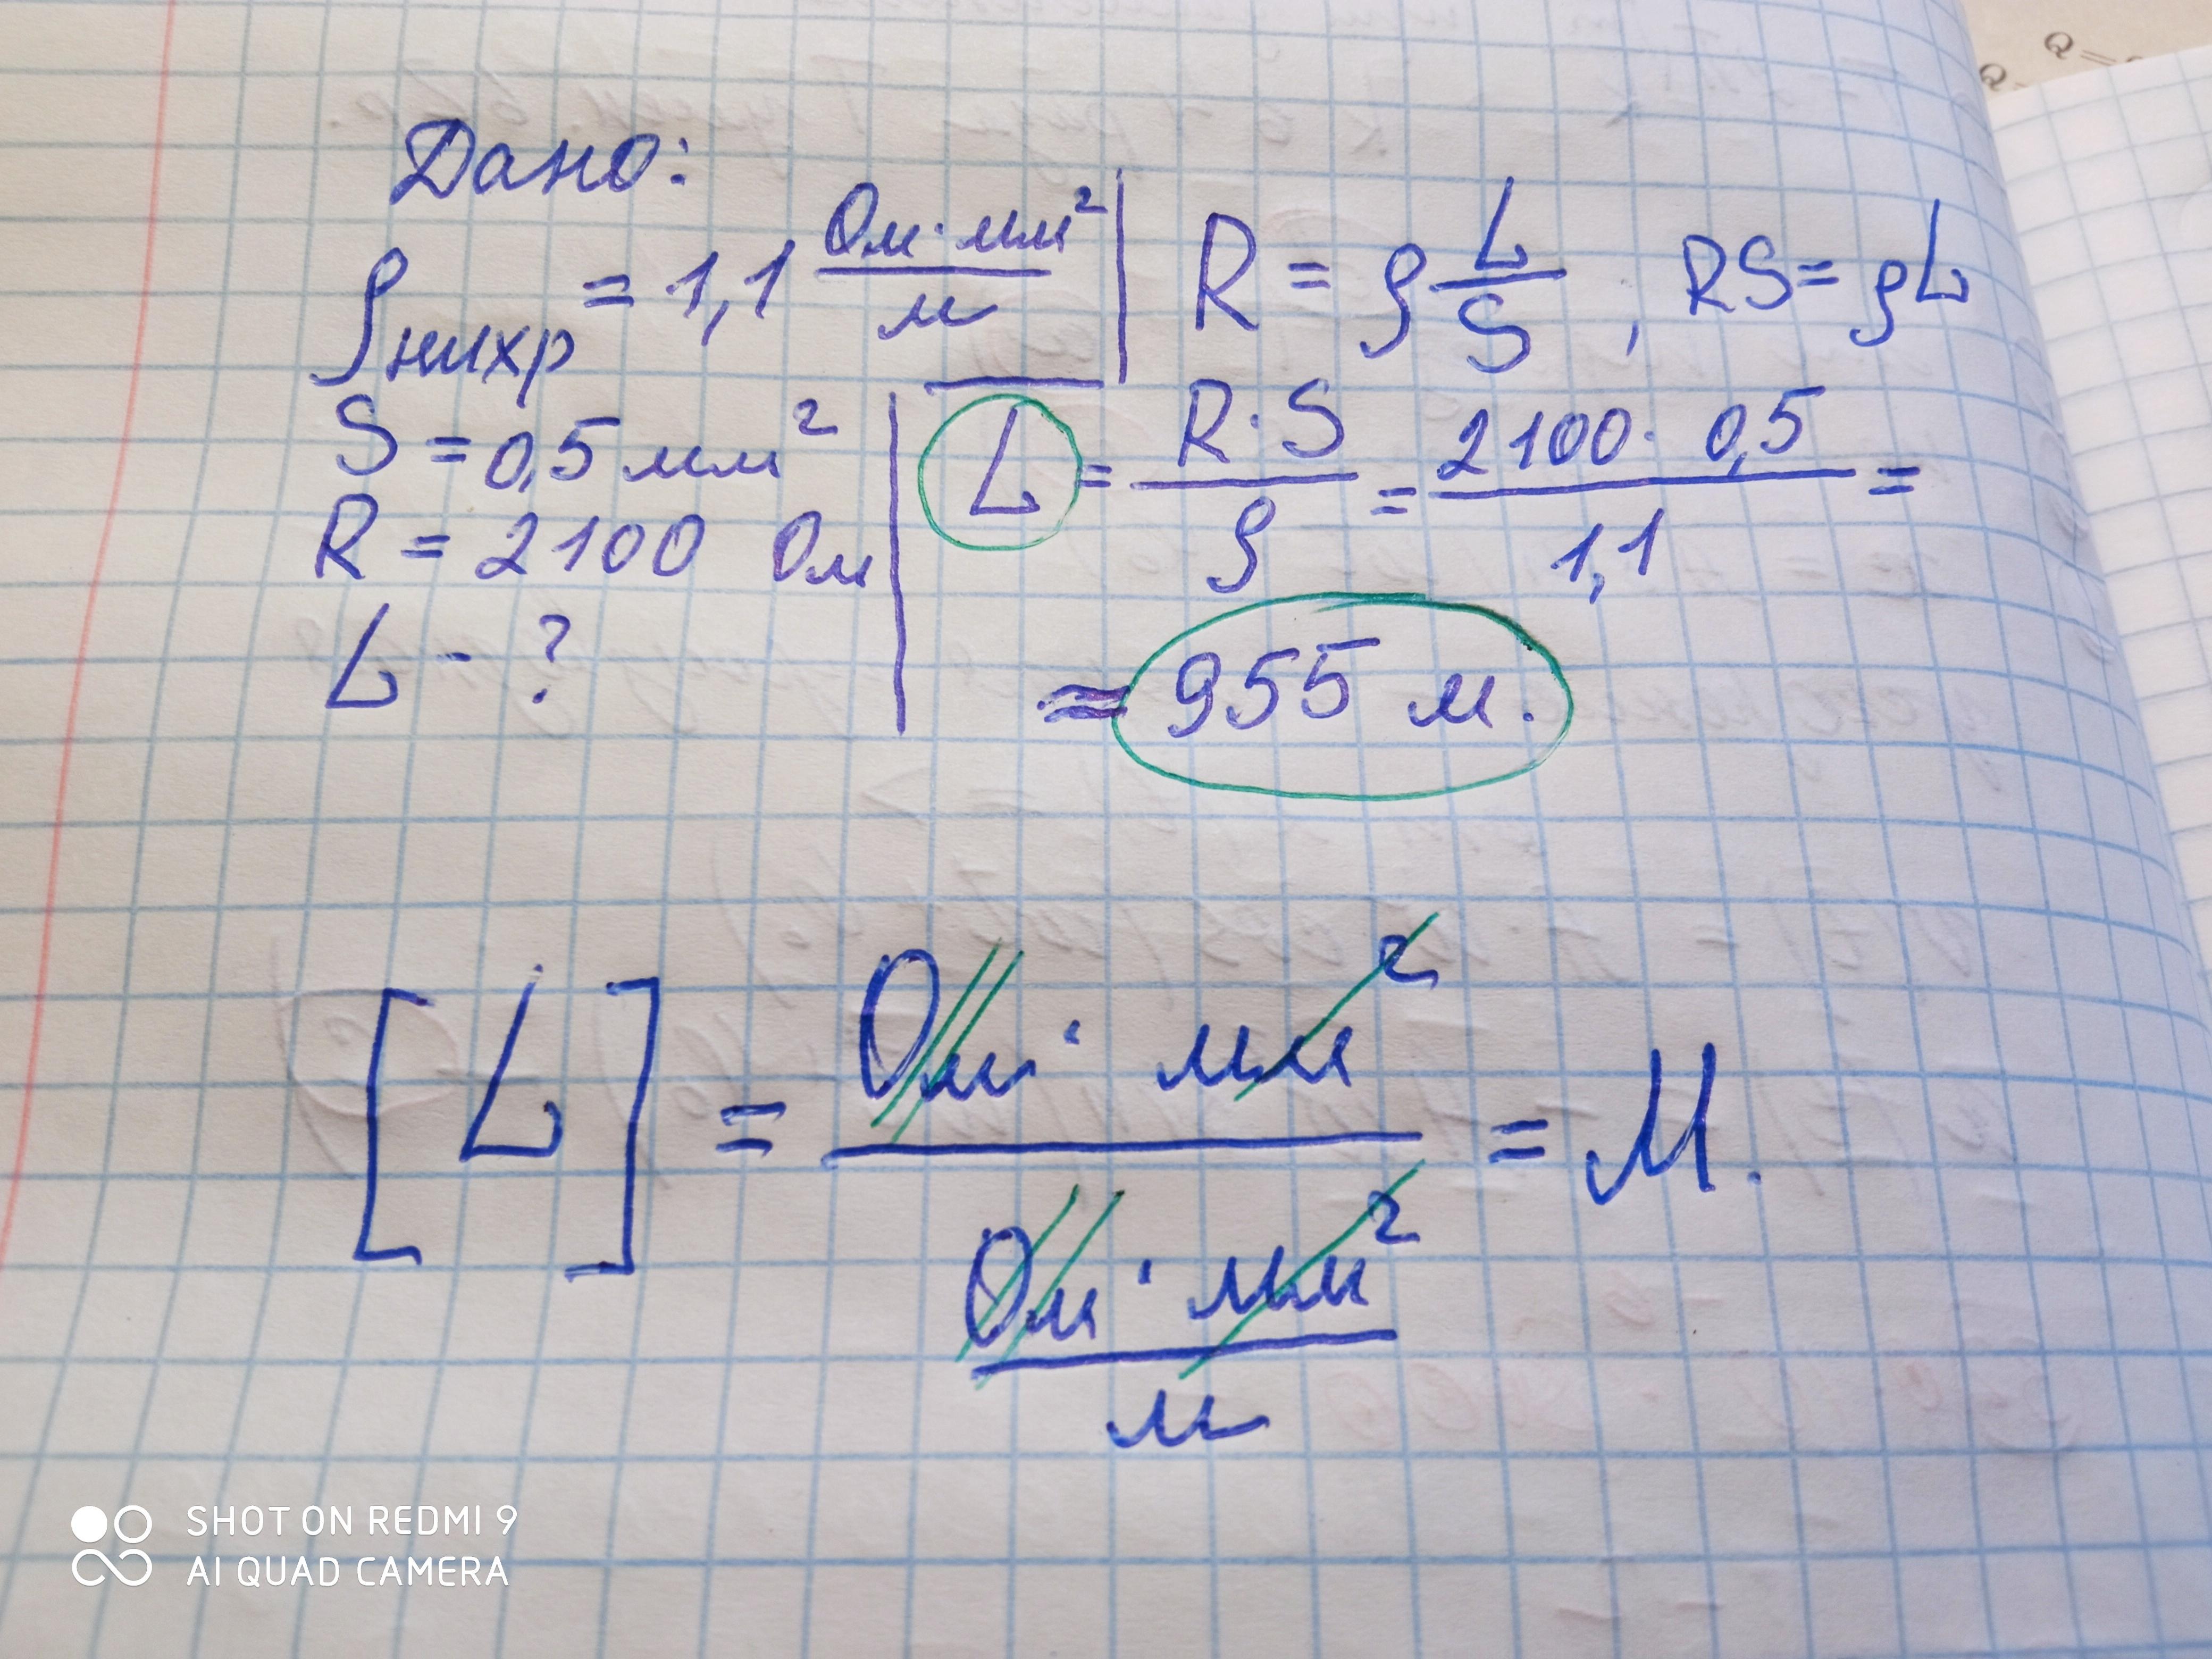 Дано:
ρнихр = 1,1 Ом·мм²/м
S = 0,5 мм²
R = 2100 Ом
L - ?
R = ρ L/S , RS = ρL
L = R·S/ρ = 2100· 0,5/1,1 =
≈ 955 м.
[L] = Ом· мм²/(Ом·мм²/м) = М.
SHOT ON REDMI 9
AI QUAD CAMERA